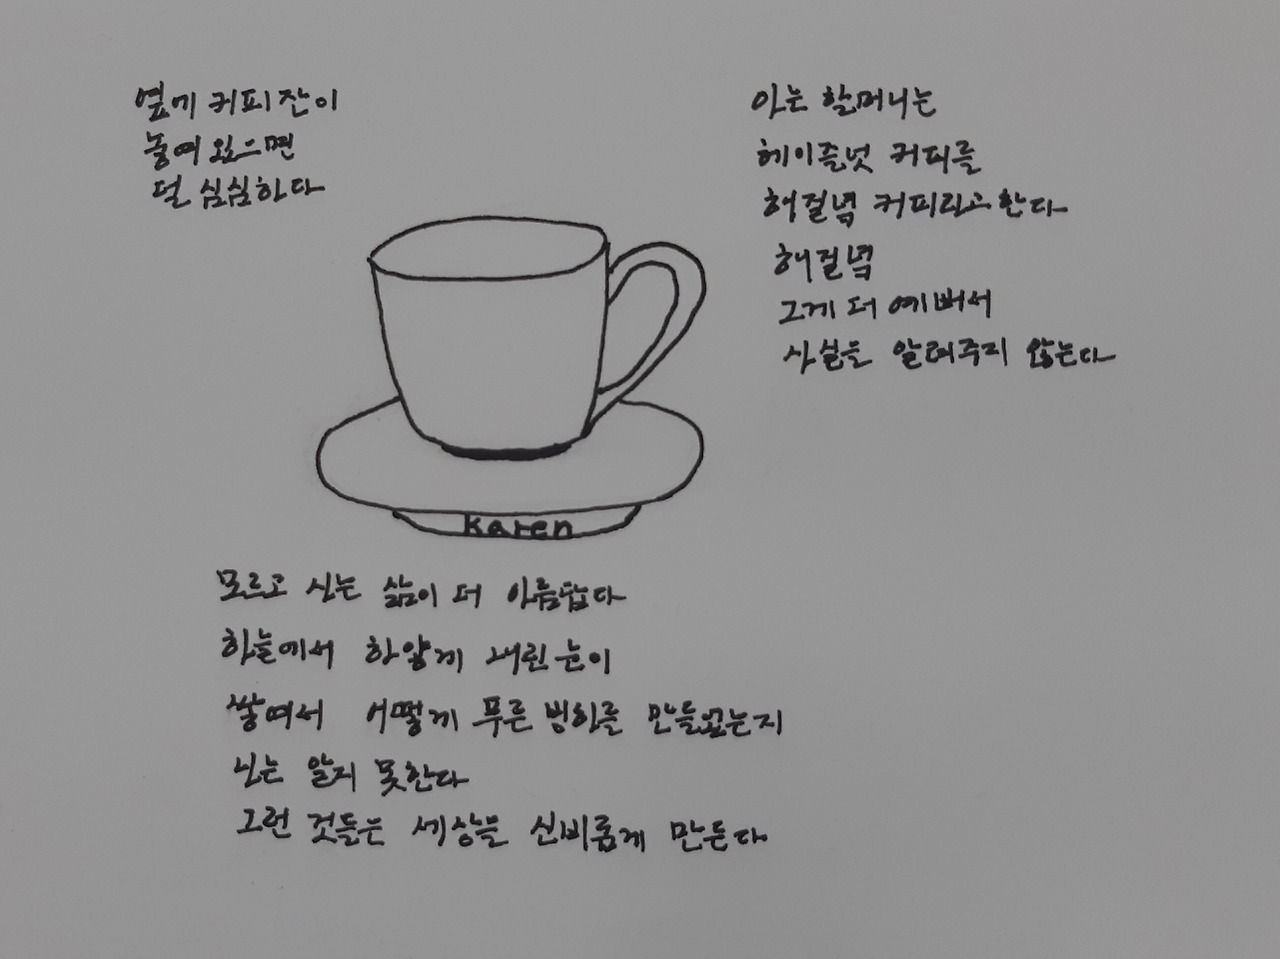 옆에 커피잔이
놓여 있으면
덜 심심하다
아는 할머니는
헤이즐넛 커피를
해질녘 커피라고 한다
해질녘
그게 더 예뻐서
사실을 알려주지 않는다
karen
모르고 사는 삶이 더 아름답다
하늘에서 하얗게 내린 눈이
쌓여서 어떻게 푸른 빙하를 만들었는지
나는 알지 못한다
그런 것들은 세상을 신비롭게 만든다